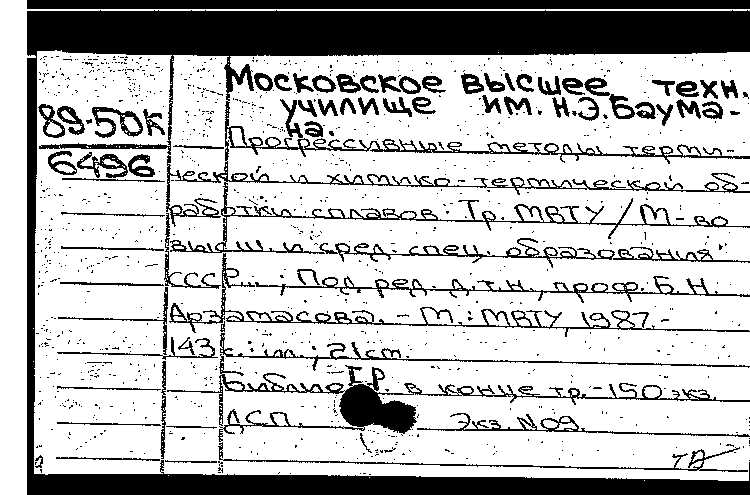 Московское высшее техн.
училище им. Н.Э.Баума-
на.
89-50К
6496
Прогрессивные методы терми-
ческой и химико-термической об-
работки сплавов: Тр. МВТУ / М-во
высш. и сред. спец. образования
СССР...; Под ред. д.т.н., проф. Б.Н.
Арзамасова. - М.: МВТУ, 1987.-
143 с.: ил.; 21 см.
Библиогр. в конце тр. -150 экз.
ДСП. Экз. N09.